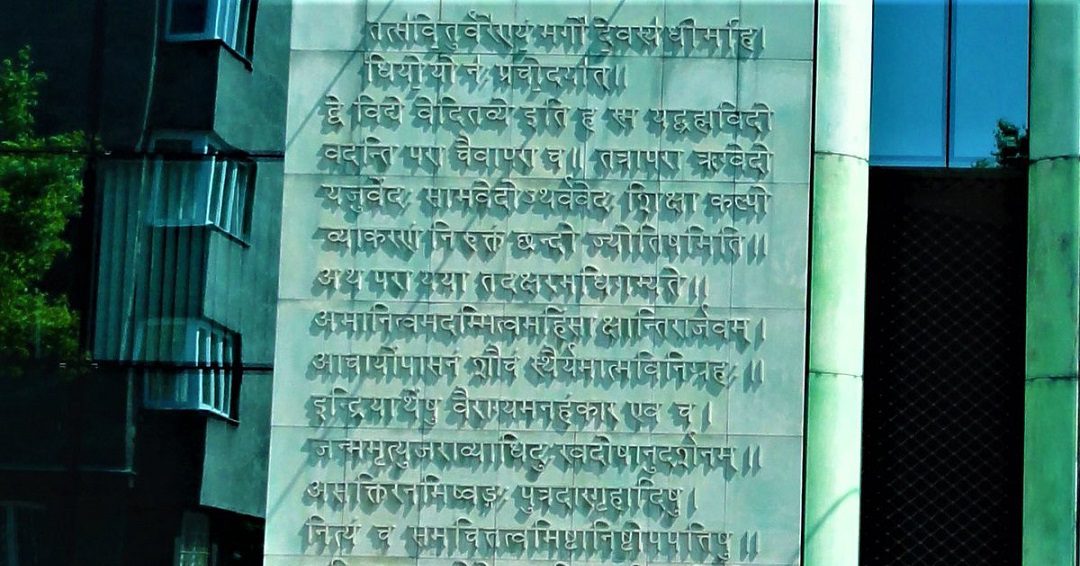 तत्सवितुर्वरेण्यं भर्गो देवस्य धीमहि।
धियो यो नः प्रचोदयात्॥
द्वे विद्ये वेदितव्ये इति ह स्म यद्ब्रह्मविदो
वदन्ति परा चैवापरा च॥ तत्रापरा ऋग्वेदो
यजुर्वेदः सामवेदोऽथर्ववेदः शिक्षा कल्पो
व्याकरणं निरुक्तं छन्दो ज्योतिषमिति॥
अथ परा यया तदक्षरमधिगम्यते॥
अमानित्वमदम्भित्वमहिंसा क्षान्तिरार्जवम्।
आचार्योपासनं शौचं स्थैर्यमात्मविनिग्रहः॥
इन्द्रियार्थेषु वैराग्यमनहंकार एव च।
जन्ममृत्युजराव्याधिदुःखदोषानुदर्शनम्॥
असक्तिरनभिष्वङ्गः पुत्रदारगृहादिषु।
नित्यं च समचित्तत्वमिष्टानिष्टोपपत्तिषु॥